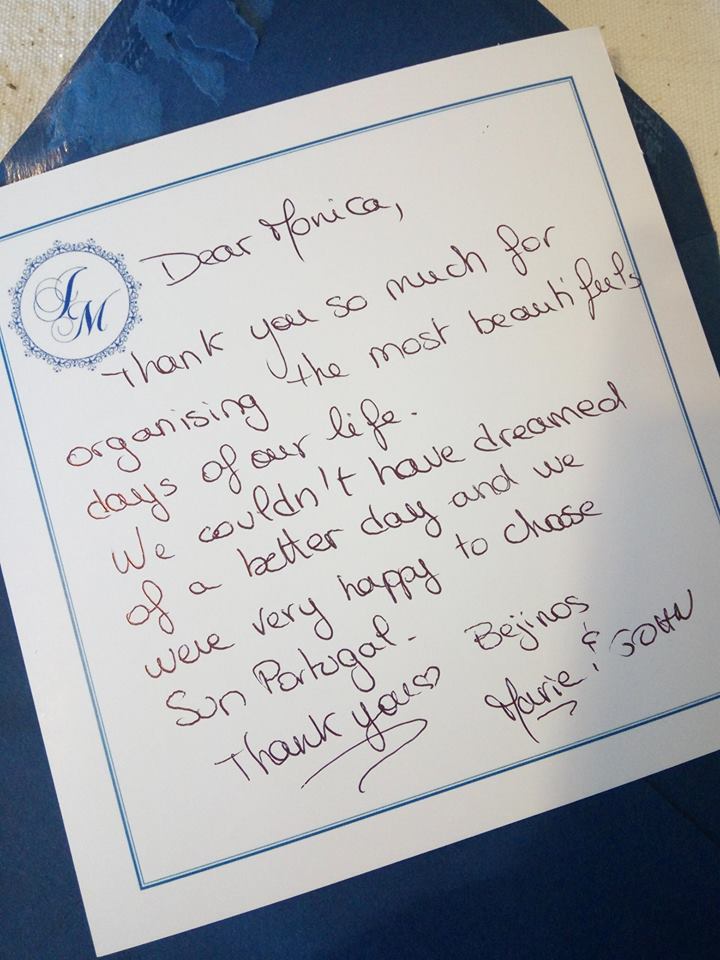 JM
Dear Monica,
Thank you so much for
organising the most beautifuls
days of our life.
We couldn't have dreamed
of a better day and we
were very happy to choose
Sun Portugal.
Thank you♡ Bejinos
Marie & JOHN